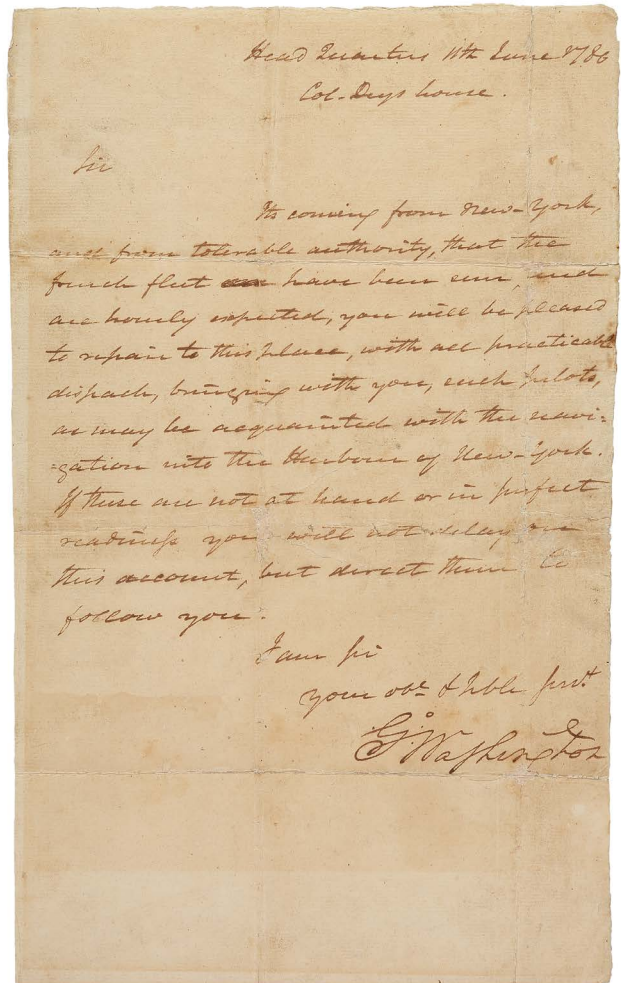 Head Quarters 11th June 1780
Col. Deys house.
Sir
Its coming from New-York,
and from tolerable authority, that the
french fleet have been seen, and
are hourly expected, you will be pleased
to repair to this place, with all practicable
dispach, bringing with you, such pilots,
as may be acquainted with the navi=
=gation into the Harbour of New-York.
If these are not at hand or in perfect
readiness you will not delay on
this account, but direct them to
follow you.
I am Sir
your obt & hble servt
Go Washington